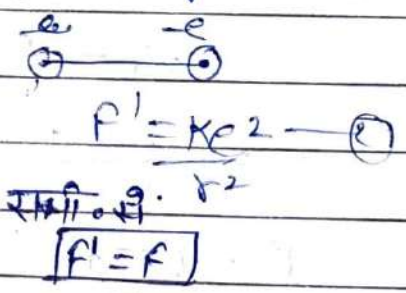 -e -e
F' = Ke² — ②
r²
समी० से
F' = F